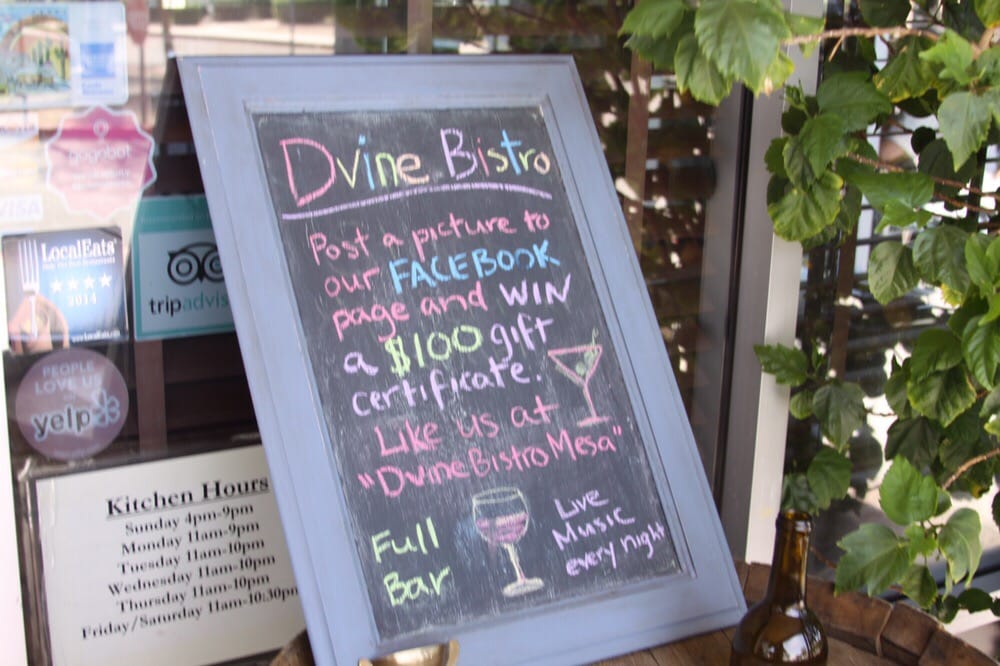 Dvine Bistro
Post a picture to
our FACEBOOK
page and WIN
a $100 gift
certificate.
Like us at
"Dvine Bistro Mesa"
Full
Bar
Live
Music
every night
gogobot
VISA
LocalEats
2014
tripadvis
PEOPLE
LOVE US
yelp
Kitchen Hours
Sunday 4pm-9pm
Monday 11am-9pm
Tuesday 11am-10pm
Wednesday 11am-10pm
Thursday 11am-10pm
Friday/Saturday 11am-10:30pm